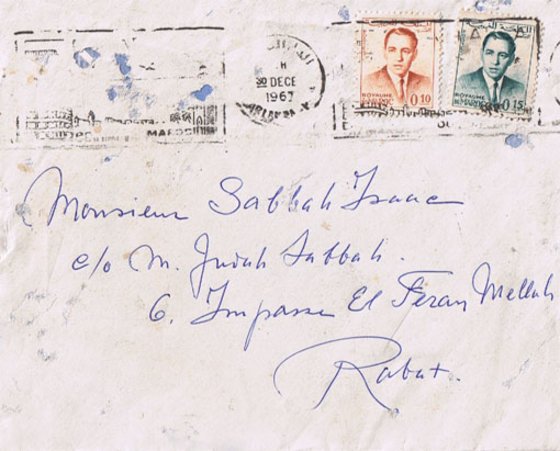 30 DECE
1967
MAROC
ROYAUME
DU MAROC
0.10
ROYAUME
DU MAROC
0.15
Monsieur Sabbah Isaac
c/o M. Judah Sabbah.
6. Impasse El Feran Mellah
Rabat.